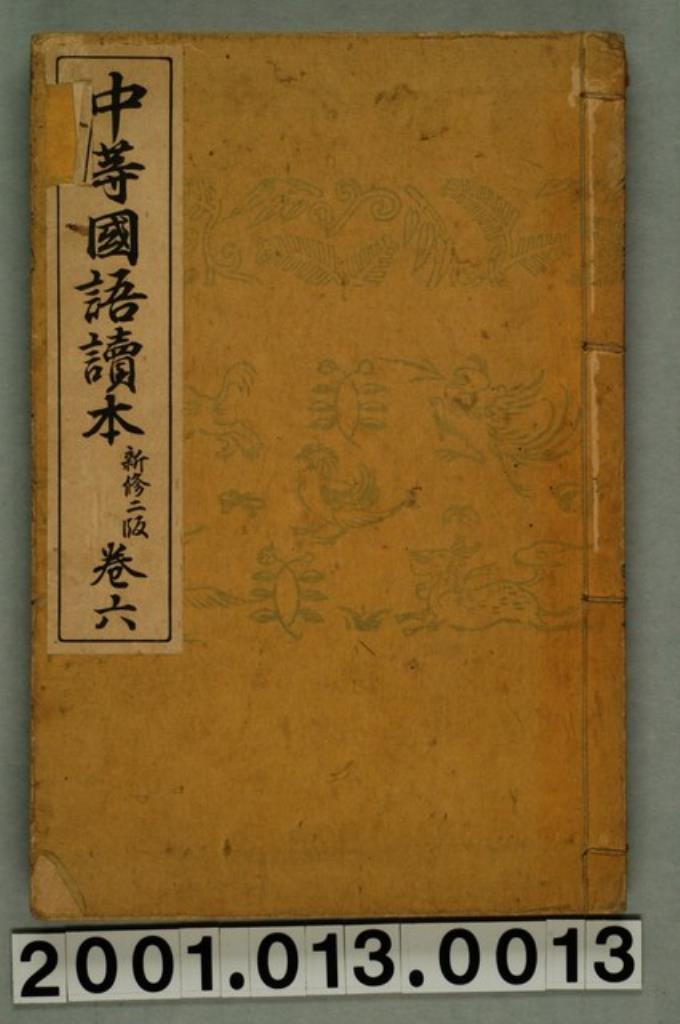 中等國語讀本
新修二版
卷六
2001.013.0013